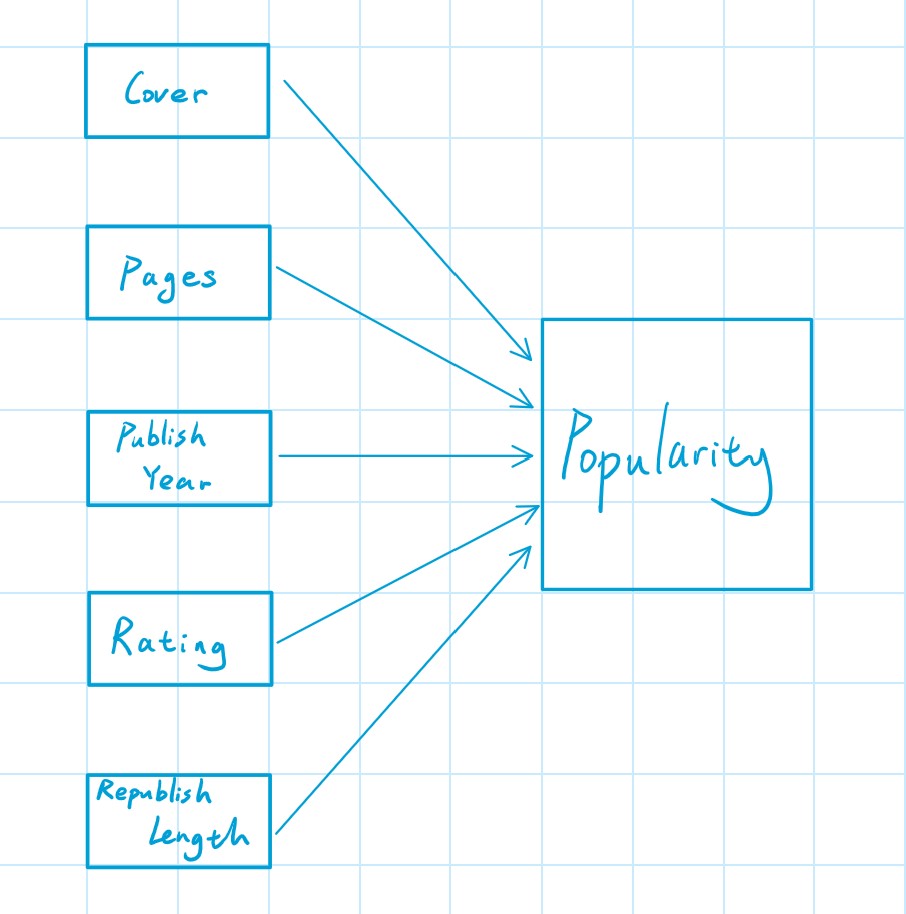 Cover
Pages
Publish
Year
Rating
Republish
Length
Popularity